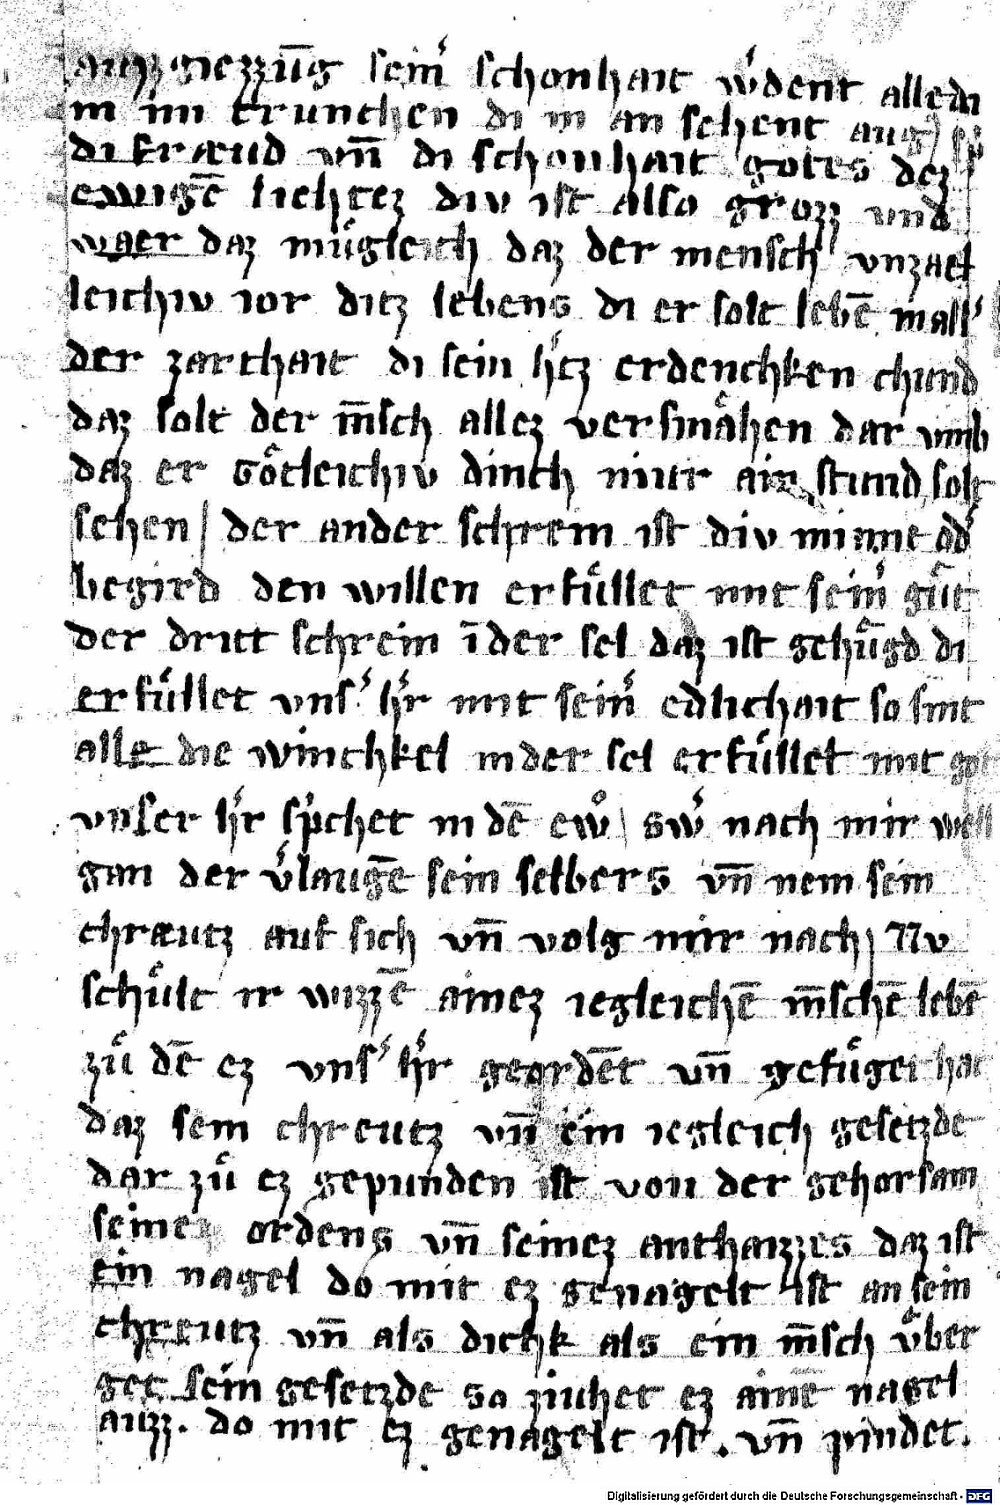 auzz giezzūg sein͛ schonhait w͛dent alle di
in inn trunchen di in an sehent aug
di fræud vn̄ di schonhait gotes dez
ewigē liehtez div ist also grozz vnd
waer daz mügleich daz der mensch vnzael
leichiv ior ditz lebens di er solt lebē in all͛
der zarthait di sein h͛tz erdenchken chund
daz solt der m̄sch allez versmähen dar vmb
daz er götleichiv dinch niur ain stund solt
sehen / der ander schrein ist div minne od͛
begird den willen erfüllet mit sein͛ güt
der dritt schrein ī der sel daz ist gehügd di
erfüllet vns͛ h͛r mit sein͛ edlichait so sint
alle die winchkel in der sel erfüllet mit got
vnser h͛r sp͛chet in dē ewͦ / sw͛ nach mir well
gan der v͛laugē sein selbers vn̄ nem sein
chræutz auf sich vn̄ volg mir nach / Nv
schült ir wizzē ainez iegleichē m̄schē lebē
zü dē ez vns͛ h͛r geordēt vn̄ gefüget hat
daz sein chreutz vn̄ ein iegleich gesetzde
dar zü ez gepunden ist von der gehorsam
seinez ordens vn̄ seinez anthaizzes daz ist
ein nagel do mit ez genagelt ist an sein
chreutz vn̄ als dichk als ein m̄sch über
get sein gesetzde so ziuhet ez ainē nagel
auzz. do mit ez genagelt ist. vn̄ pindet.
Digitalisierung gefördert durch die Deutsche Forschungsgemeinschaft - DFG